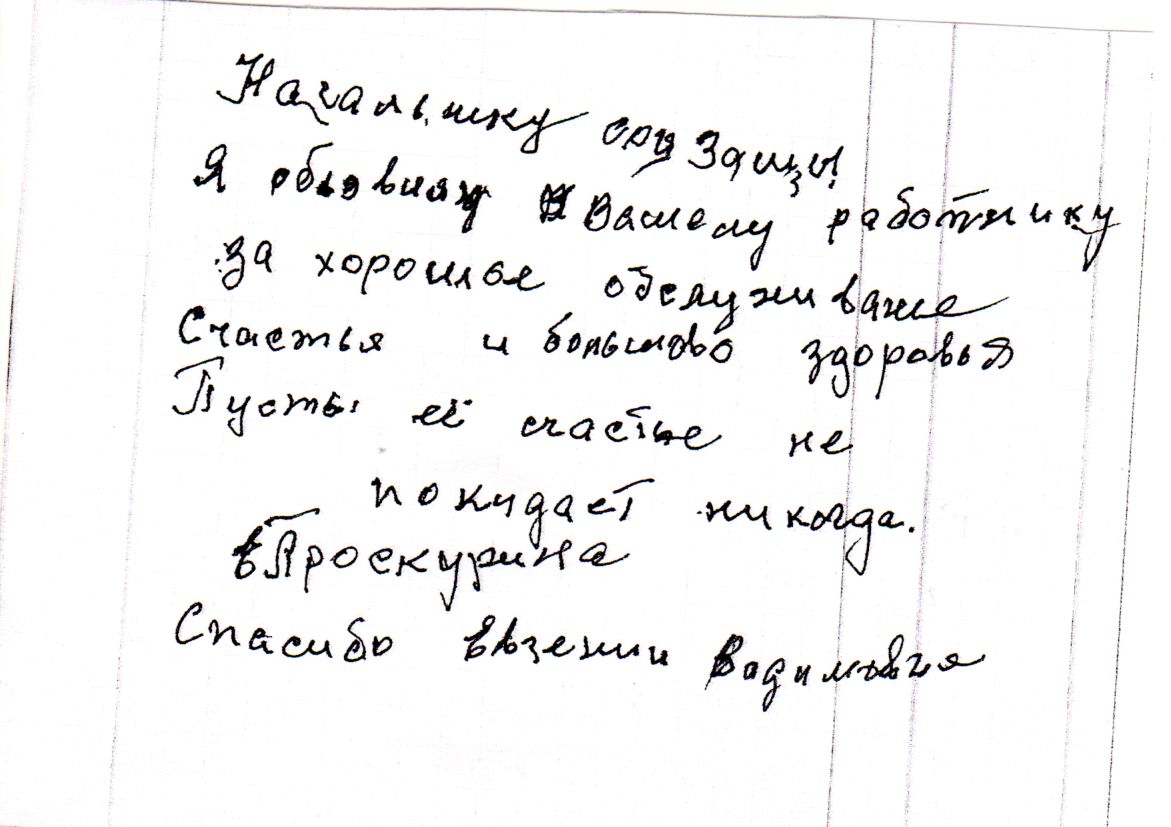 Начальнику соц Защы
Я обьявляу Вашему работнику
за хорошье обслуживание
Счастья и большово здоровья
Пусть её счастье не
покидает никогда.
Проскурина
Спасибо Евгении Вадимовня